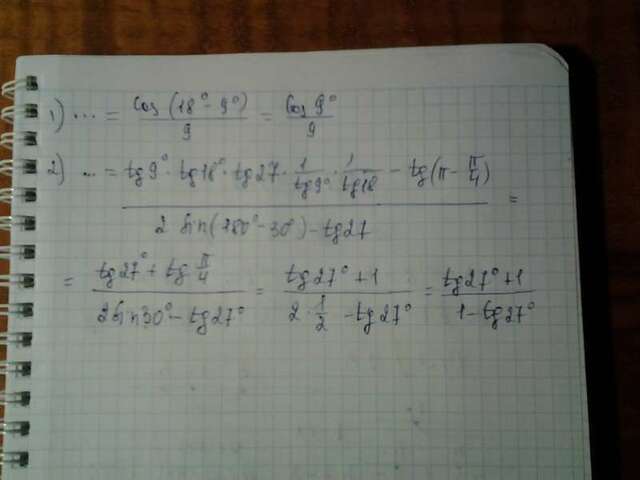 1) ... = cos(18° - 9°)/9 = cos 9°/9
2) ... = (tg9° · tg18° · tg27 · 1/tg9° · 1/tg18 - tg(π - π/4))/(2 sin(180° - 30°) - tg27) =
= (tg27° + tg π/4)/(2sin30° - tg27°) = (tg27° + 1)/(2 · 1/2 - tg27°) = (tg27° + 1)/(1 - tg27°)